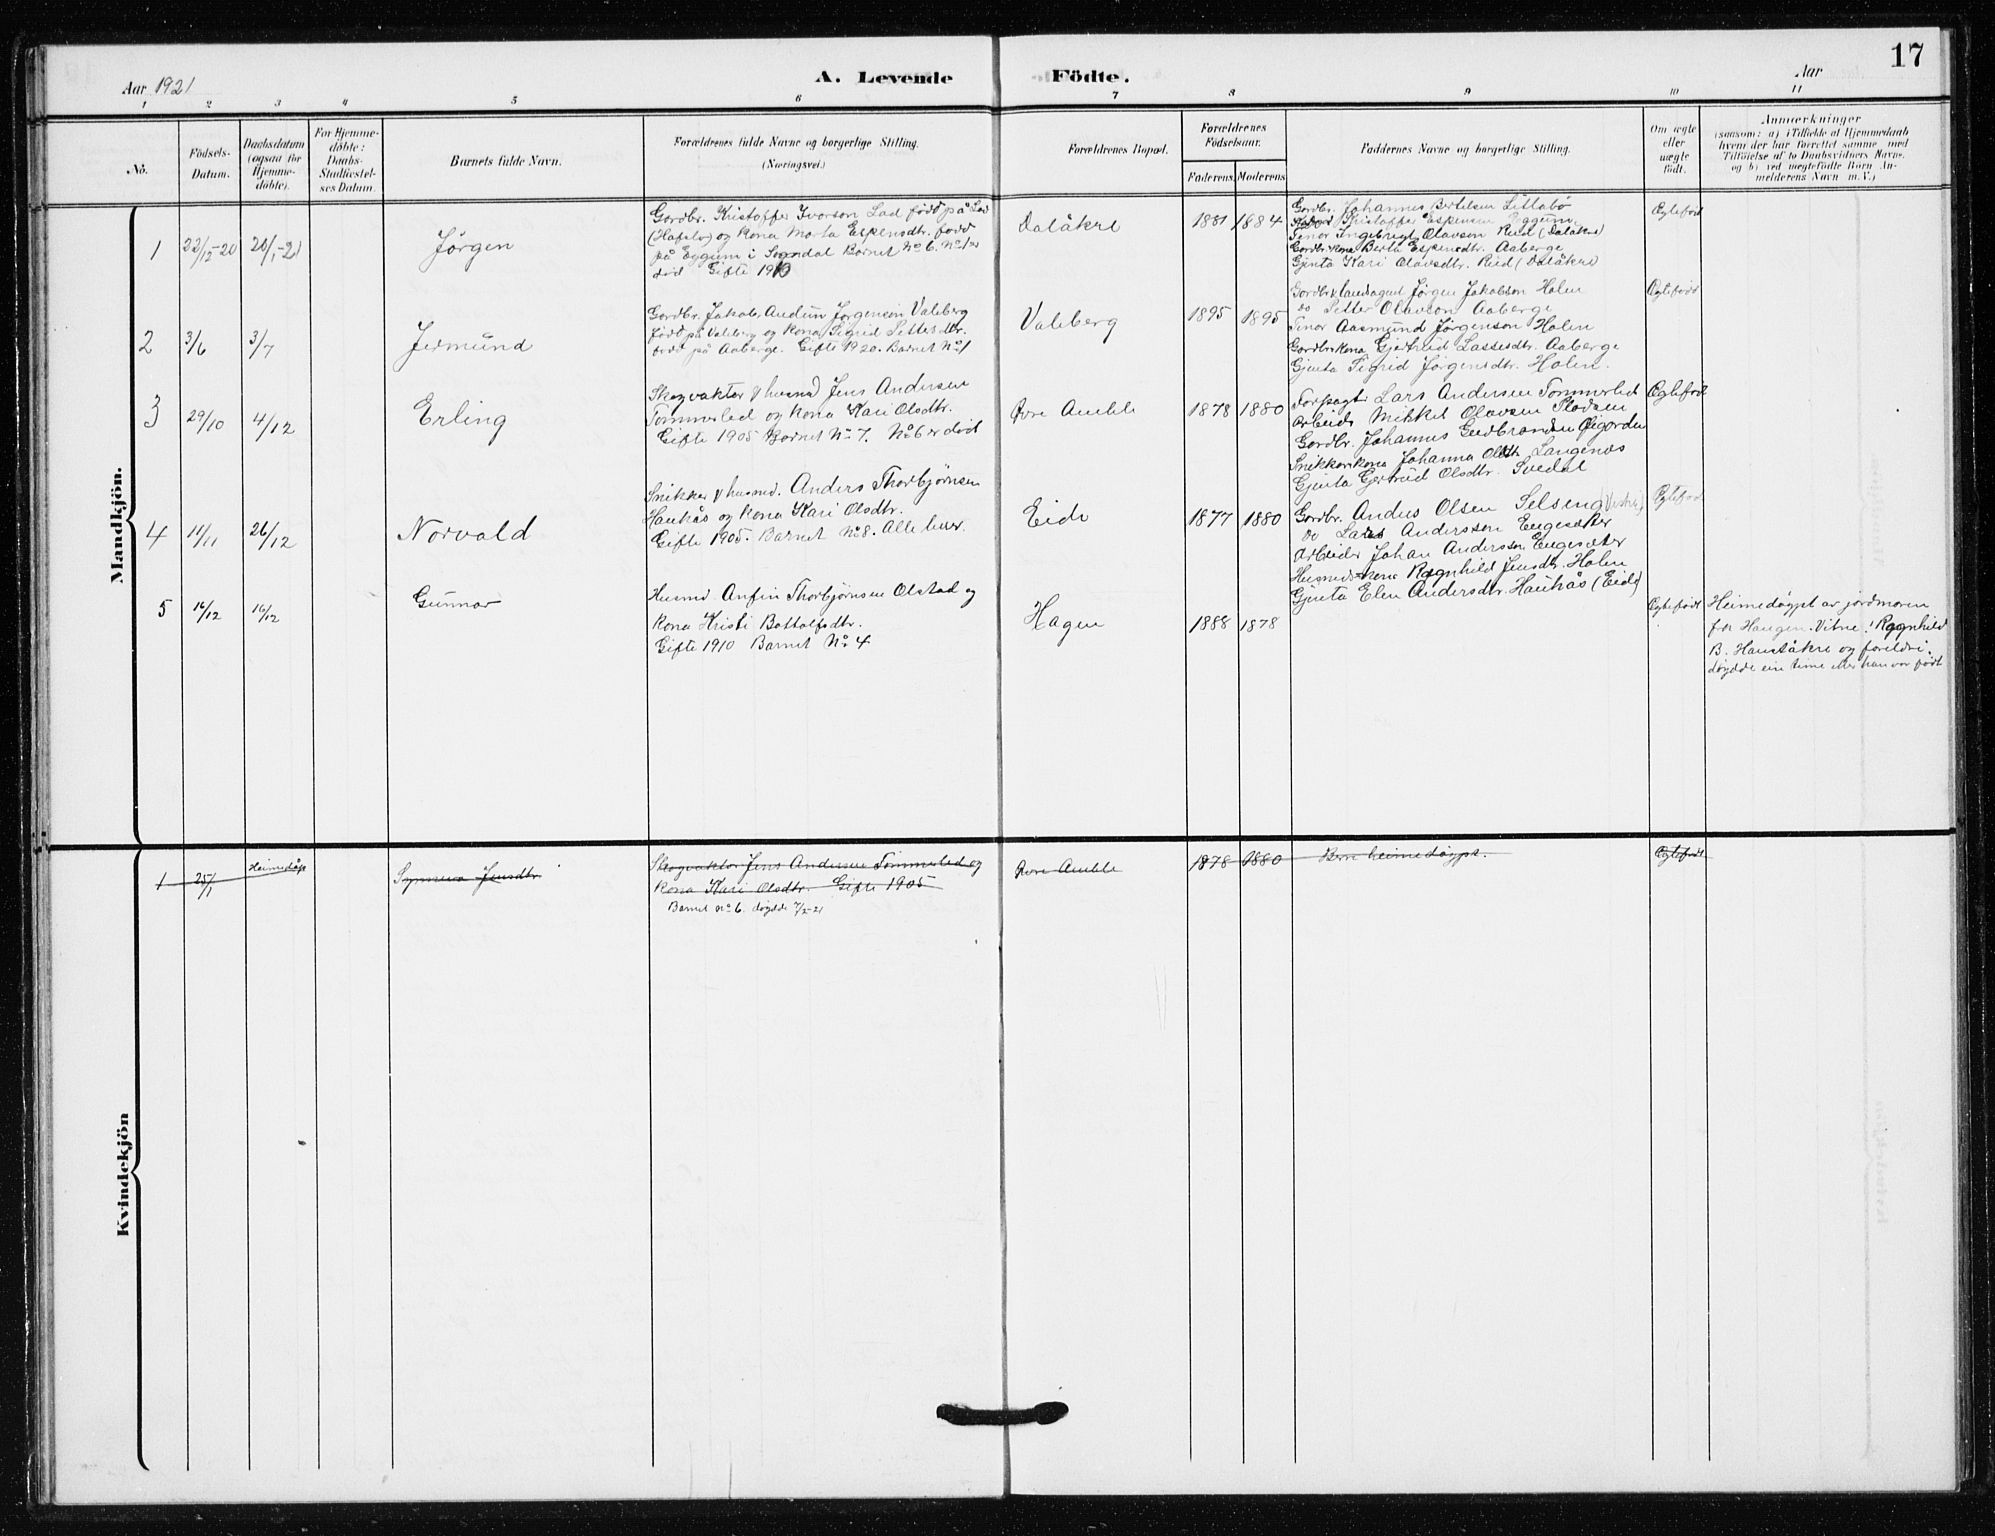 17
Aar 1921
A. Levende Födte.
Aar
1 2 3 4 5 6 7 8 9 10 11
No.
Födsels-Datum.
Daabsdatum (ogsaa for Hjemme-döbte).
For Hjemme-döbte: Daabs-Stadfæstel-ses Datum.
Barnets fulde Navn.
Forældrenes fulde Navne og borgerlige Stilling.
(Næringsvei.)
Forældrenes Bopæl.
Forældrenes Födselsaar.
Faderens. Moderens
Faddernes Navne og borgerlig Stilling.
Om ægte eller uægte födt.
Anmærkninger
(saasom: a) i Tilfælde af Hjemmedaab
hvem der har forrettet samme med
Tilföielse af to Daabsvidners Navne.
og b) ved uægtefödte Börn An-
melderens Navn m. V.)
Mandkjön.
1 22/12-20 20/1-21 Jørgen
Gardbr. Kristoffer Ivarson Lad født på Lad
(Hafslo) og kona Marta Espensdtr. født
på Eggum i Sogndal Barnet No 6. No 1 er
død Gifte 1910
Dalåkre 1881 1884
Gardbr. Johannes Bertelsen Littabø
Kristoffer Espensen Eggum
Tenar Ingebrigt Olavson Rud (Dalåkre)
Gardbr.kona Berta Espensdtr. Aaberge
Gjenta Kari Olavsdtr. Rud (Dalåkre
Egtefødt
2 3/6 3/7 Jermund
Gardbr. Jakob Andun Jørgenson Valeberg
født på Valeberg og kona Sigrid Settesdtr.
født på Aaberge. Gifte 1920. Barnet No 1
Valeberg 1895 1895
Gardbr & landhand Jørgen Jakobson Holen
do Sette Olavson Aaberge
Tenar Aasmund Jørgenson Holen
Gardbr.kona Gjertrud Lassesdtr. Aaberge
Gjenta Sigrid Jørgensdtr. Holen.
Egtefødt
3 29/10 4/12 Erling
Skogvaktar & husmd Jens Andersen
Tømmerlad og kona Kari Olsdtr.
Gifte 1905 Barnet No 7. No 6 er død
Øvre Amble 1878 1880
Forpagt. Lars Andersen Tømmerlid
Arbeids Mikkel Olavsen
Gardbr. Johannes Gudbrandsen Øigarden
Snikkarkona Johanna Olsdtr Langenæs
Gjenta Gjertrud Olsdtr. Svedal
Egtefødt
4 11/11 26/12 Norvald
Snikkar & husmd. Anders Thorbjørnsen
Haukås og kona Kari Olsdtr.
Gifte 1905. Barnet No 8. Alle lever.
Eide 1877 1880
Gardbr. Anders Olsen Selseng
do Lars Andersson Engesæter
Arbeider Johan Andersson Engesæter
Husmds-kona Ragnhild Jensdtr. Holen
Gjenta Elen Andersdtr. Haukås (Eide)
Egtefødt
5 16/12 16/12 Gunnar
Husmd. Anfin Thorbjørnsen Olstad og
kona Kristi Battolfsdtr.
Gifte 1910 Barnet No 4
Hagen 1888 1878
Egtefødt
Heimedøypt av jordmoren
frk Haugen. Vitne: Ragnhild
B. Hauståkre og foreldri.
døydde ein time etter han var født
Kvindekjön
1 25/1 Heimedåp Synneva Jensdtr
Skogvaktar Jens Andersen Tømmerlad og
kona Kari Olsdtr. Gifte 1905
Barnet no 6. døydde 7/2-21
Øvre Amble 1878 1880 Bere heimedøypt. Egtefødt